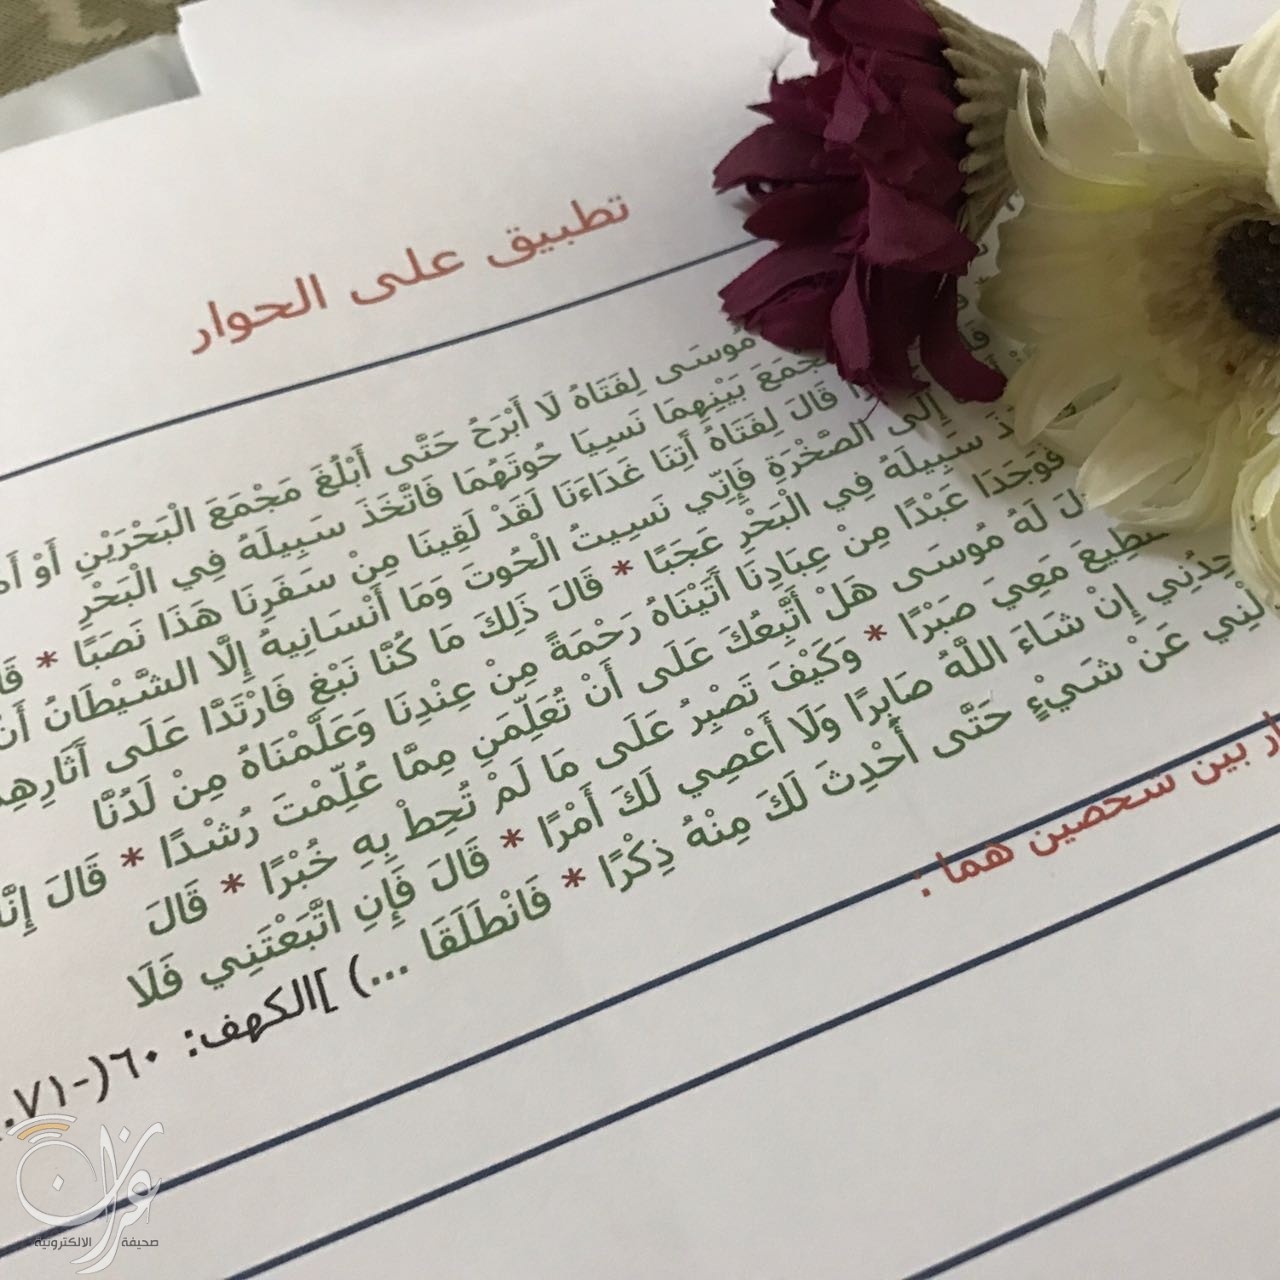 تطبيق على الحوار
مُوسَى لِفَتَاهُ لَا أَبْرَحُ حَتَّى أَبْلُغَ مَجْمَعَ الْبَحْرَيْنِ أَوْ
بَيْنِهِمَا نَسِيَا حُوتَهُمَا فَاتَّخَذَ سَبِيلَهُ فِي الْبَحْرِ
قَالَ لِفَتَاهُ آَتِنَا غَدَاءَنَا لَقَدْ لَقِينَا مِنْ سَفَرِنَا هَذَا نَصَبًا *
إِلَى الصَّخْرَةِ فَإِنِّي نَسِيتُ الْحُوتَ وَمَا أَنْسَانِيهُ إِلَّا الشَّيْطَانُ
سَبِيلَهُ فِي الْبَحْرِ عَجَبًا * قَالَ ذَلِكَ مَا كُنَّا نَبْغِ فَارْتَدَّا عَلَى
فَوَجَدَا عَبْدًا مِنْ عِبَادِنَا آَتَيْنَاهُ رَحْمَةً مِنْ عِنْدِنَا وَعَلَّمْنَاهُ مِنْ لَدُنَّا
لَهُ مُوسَى هَلْ أَتَّبِعُكَ عَلَى أَنْ تُعَلِّمَنِ مِمَّا عُلِّمْتَ رُشْدًا * قَالَ
مَعِيَ صَبْرًا * وَكَيْفَ تَصْبِرُ عَلَى مَا لَمْ تُحِطْ بِهِ خُبْرًا * قَالَ
إِنْ شَاءَ اللَّهُ صَابِرًا وَلَا أَعْصِي لَكَ أَمْرًا * قَالَ فَإِنِ اتَّبَعْتَنِي فَلَا
عَنْ شَيْءٍ حَتَّى أُحْدِثَ لَكَ مِنْهُ ذِكْرًا * فَانْطَلَقَا ...) ]الكهف: ٦٠(-٧١.
بين شخصين هما :
غران
صحيفة الالكترونية